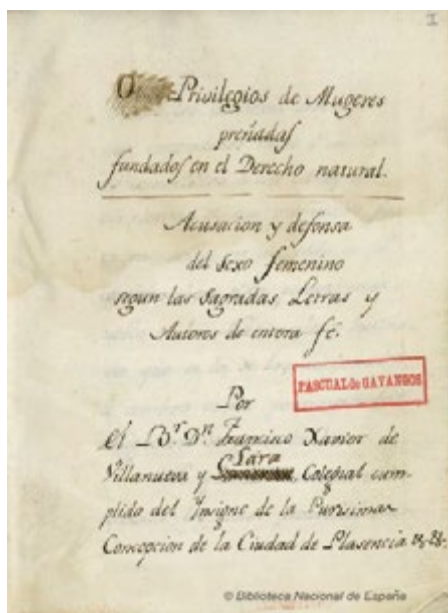 I
Privilegios de Mugeres
preñadas
fundados en el Derecho natural.
Acusacion y defensa
del Sexo femenino
segun las Sagradas Letras y
Autores de entera fe.
PASCUAL de GAYANGOS
Por
el Br. Dn. Francisco Xavier de
Lara
Villanueva y Colegial cum-
plido del Insigne de la Purisima
Concepcion de la Ciudad de Plasencia
© Biblioteca Nacional de España